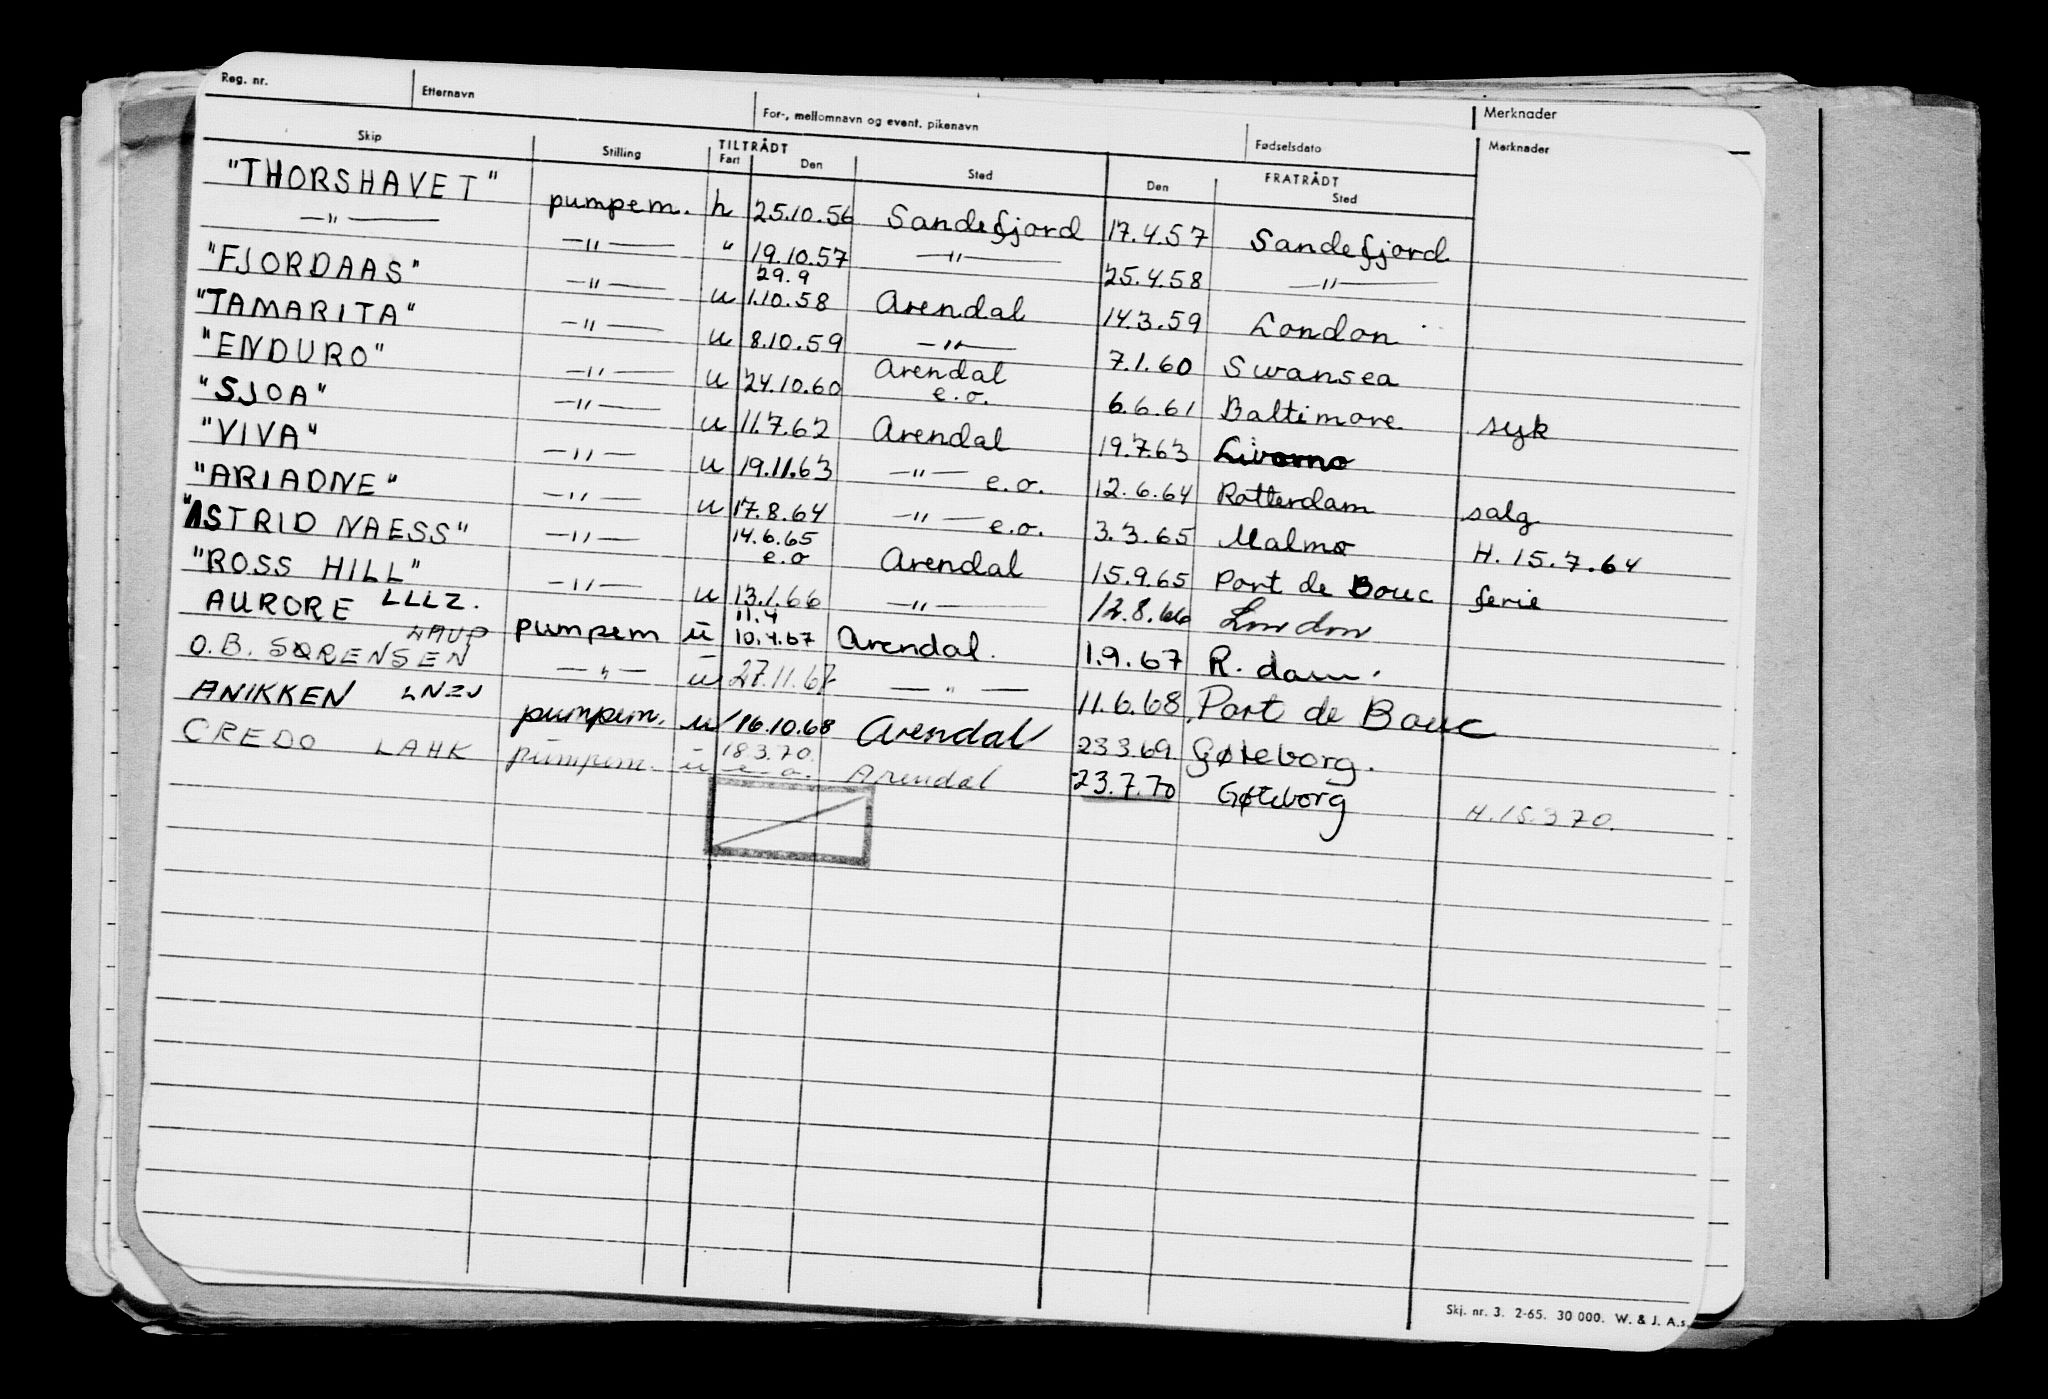 Reg. nr. Etternavn For-, mellomnavn og event. pikenavn Fødselsdato Merknader
Skip Stilling TILTRÅDT Fart Den Sted FRATRÅDT Den Sted Merknader
"THORSHAVET" pumpem. h 25.10.56 Sandefjord 17.4.57 Sandefjord
—"— —"— " 19.10.57 —"— 25.4.58 —"—
"FJORDAAS" —"— u 29.9 1.10.58 Arendal 14.3.59 London
"TAMARITA" —"— u 8.10.59 —"— 7.1.60 Swansea
"ENDURO" —"— u 24.10.60 Arendal e.o. 6.6.61 Baltimore syk
"SJOA" —"— u 11.7.62 Arendal 19.7.63 Livorno
"VIVA" —"— u 19.11.63 —"— e.o. 12.6.64 Rotterdam salg
"ARIADNE" —"— u 17.8.64 —"— e.o. 3.3.65 Malmø H. 15.7.64
"ASTRID NAESS" —"— 14.6.65 e.o Arendal 15.9.65 Port de Bouc ferie
"ROSS HILL" —"— u 13.1.66 —"— 12.8.66 London
AURORE LLLZ. pumpem u 11.4 10.4.67 Arendal. 1.9.67 R.dam.
O.B. SØRENSEN —"— u 27.11.67 —"— 11.6.68 Port de Bouc
ANIKKEN LNZU pumpem. u 16.10.68 Arendal 23.3.69 Gøteborg.
CREDO LAHK pumpem. u 18.3.70. e.o. Arendal 23.7.70 Gøteborg H.15.3.70.
Skj. nr. 3. 2-65. 30 000. W. & J. A.s.